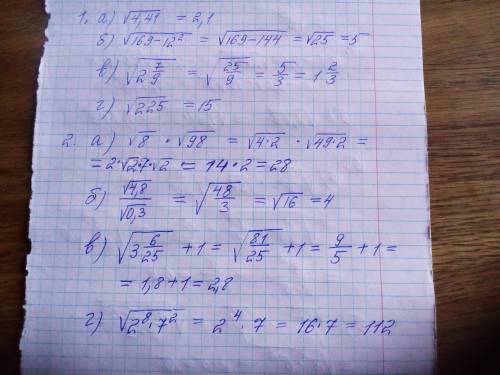 1. а) √4,41 = 2,1
б) √(169-12²) = √(169-144) = √25 = 5
в) √(2 7/9) = √(25/9) = 5/3 = 1 2/3
г) √225 = 15
2. а) √8 · √98 = √(4·2) · √(49·2) =
= 2·√2·7·√2 = 14·2 = 28
б) √4,8/√0,3 = √(48/3) = √16 = 4
в) √(3 6/25) + 1 = √(81/25) + 1 = 9/5 + 1 =
= 1,8 + 1 = 2,8
г) √(2⁸·7²) = 2⁴·7 = 16·7 = 112